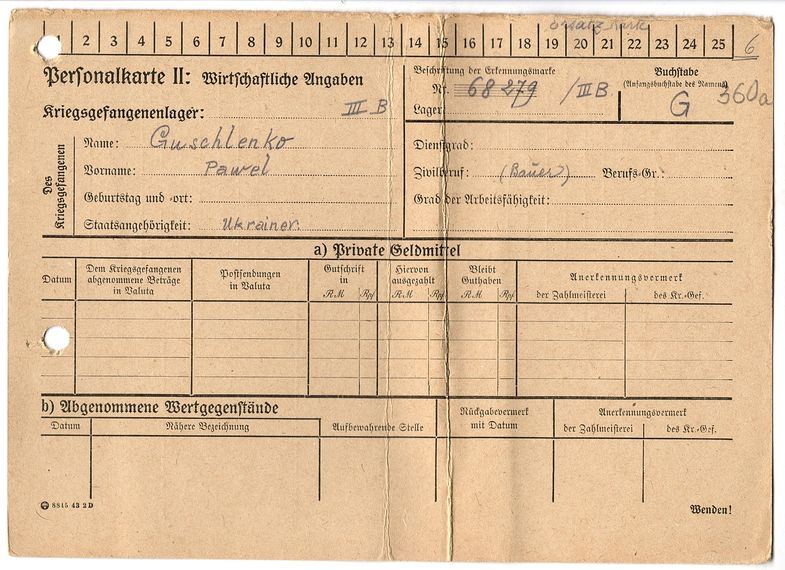 Ersatzkarte
1 2 3 4 5 6 7 8 9 10 11 12 13 14 15 16 17 18 19 20 21 22 23 24 25 6
Personalkarte II: Wirtschaftliche Angaben
Kriegsgefangenenlager: III B
Beschriftung der Erkennungsmarke
Nr. 68279 / III B
Lager:
Buchstabe
(Anfangsbuchstabe des Namens)
G 360a
Des Kriegsgefangenen
Name: Guschlenko
Vorname: Pawel
Geburtstag und -ort:
Staatsangehörigkeit: Ukrainer.
Dienstgrad:
Zivilberuf: (Bauer) Berufs-Gr.:
Grad der Arbeitsfähigkeit:
a) Private Geldmittel
Datum
Dem Kriegsgefangenen abgenommene Beträge in Valuta
Postsendungen in Valuta
Gutschrift in
RM Rpf
Hiervon ausgezahlt
RM Rpf
Bleibt Guthaben
RM Rpf
Anerkennungsvermerk
der Zahlmeisterei des Kr.-Gef.
b) Abgenommene Wertgegenstände
Datum
Nähere Bezeichnung
Aufbewahrende Stelle
Rückgabevermerk mit Datum
Anerkennungsvermerk
der Zahlmeisterei des Kr.-Gef.
8845 43 2 D
Wenden!